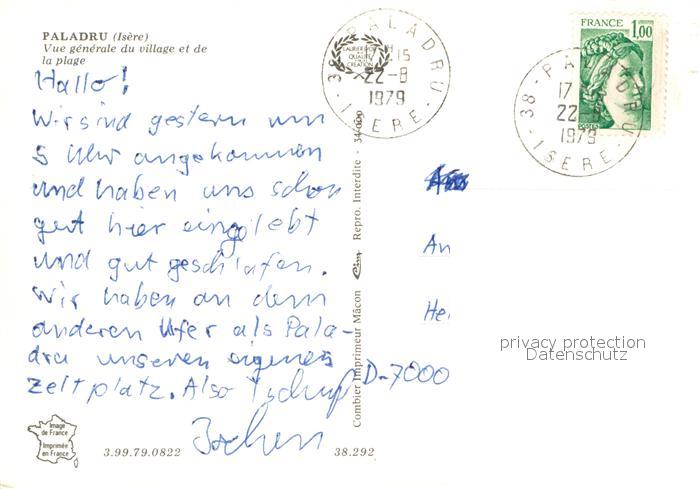 PALADRU (Isère)
Vue générale du village et de
la plage
Hallo!
Wir sind gestern um
5 Uhr angekommen
und haben uns schon
gut hier eingelebt
und gut geschlafen.
Wir haben an dem
anderen Ufer als Pala-
dru unseren eigenen
Zeltplatz. Also Tschuß
Jochen
Image
de France
Imprimée
en France
3.99.79.0822
38.292
Combier Imprimeur Mâcon Cim Repro. Interdite - 34-000
38 - PALADRU
LAURIER D'OR
QUALITÉ
CRÉATION
H 15
22-8
1979
ISERE
FRANCE
1,00
38 - PALADRU
17 H
22-8
1979
ISERE
An
He
D-7000
privacy protection
Datenschutz